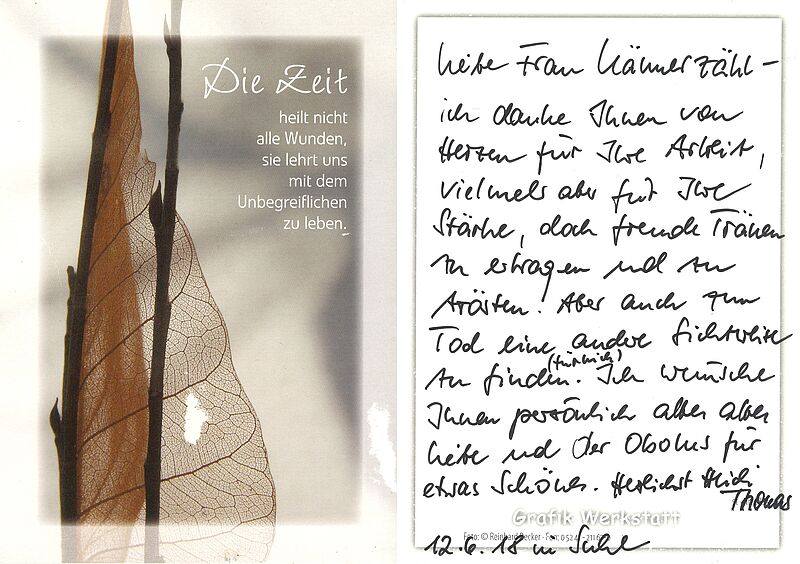 Die Zeit
heilt nicht
alle Wunden,
sie lehrt uns
mit dem
Unbegreiflichen
zu leben.
liebe Frau Kämmerzähl –
ich danke Ihnen von
Herzen für Ihre Arbeit,
vielmehr aber für Ihre
Stärke, doch fremde Tränen
zu ertragen und zu
trösten. Aber auch zum
Tod eine andere Sichtweise
(für mich)
zu finden. Ich wünsche
Ihnen persönlich alles alles
liebe und der Obolus für
etwas Schönes. Herzlichst Heidi
Thomas
Grafik Werkstatt
Foto: © Reinhard Becker - Fon: 0 52 4
12.6.18 in Suhl